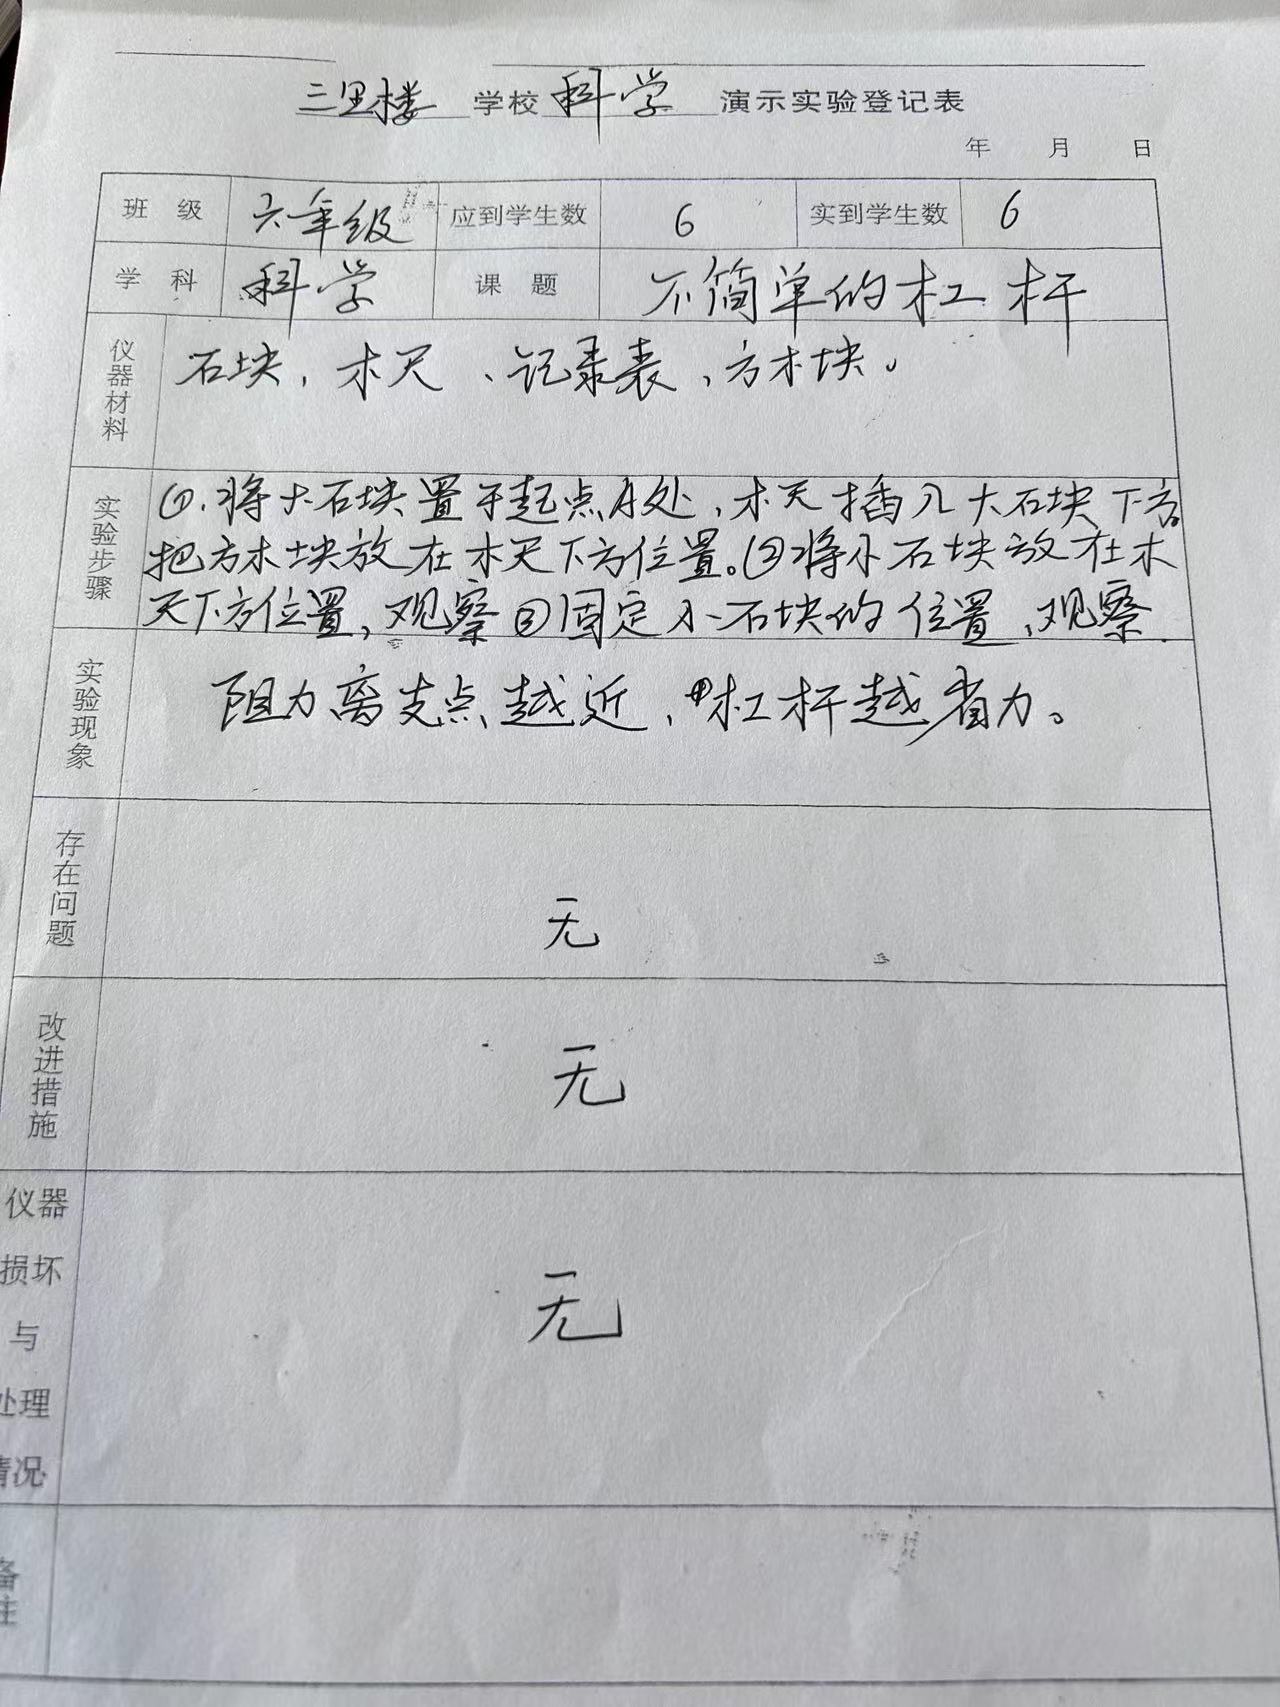 三里楼 学校 科学 演示实验登记表
年 月 日
班 级 六年级 应到学生数 6 实到学生数 6
学 科 科学 课 题 不简单的杠杆
仪器材料 石块，木尺、记录表，方木块。
实验步骤
①.将大石块置于起点A处，木尺插入大石块下方，
把方木块放在木尺下方位置。②将小石块放在木
尺下方位置，观察③固定小石块的位置，观察.
实验现象 阻力离支点越近，杠杆越省力。
存在问题 无
改进措施 无
仪器
损坏
与
处理
情况
无
备注